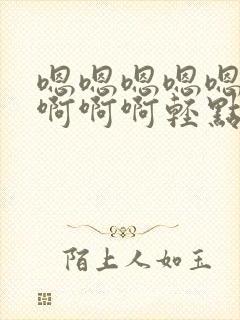 嗯嗯嗯嗯嗯
啊啊啊輕點
陌上人如玉